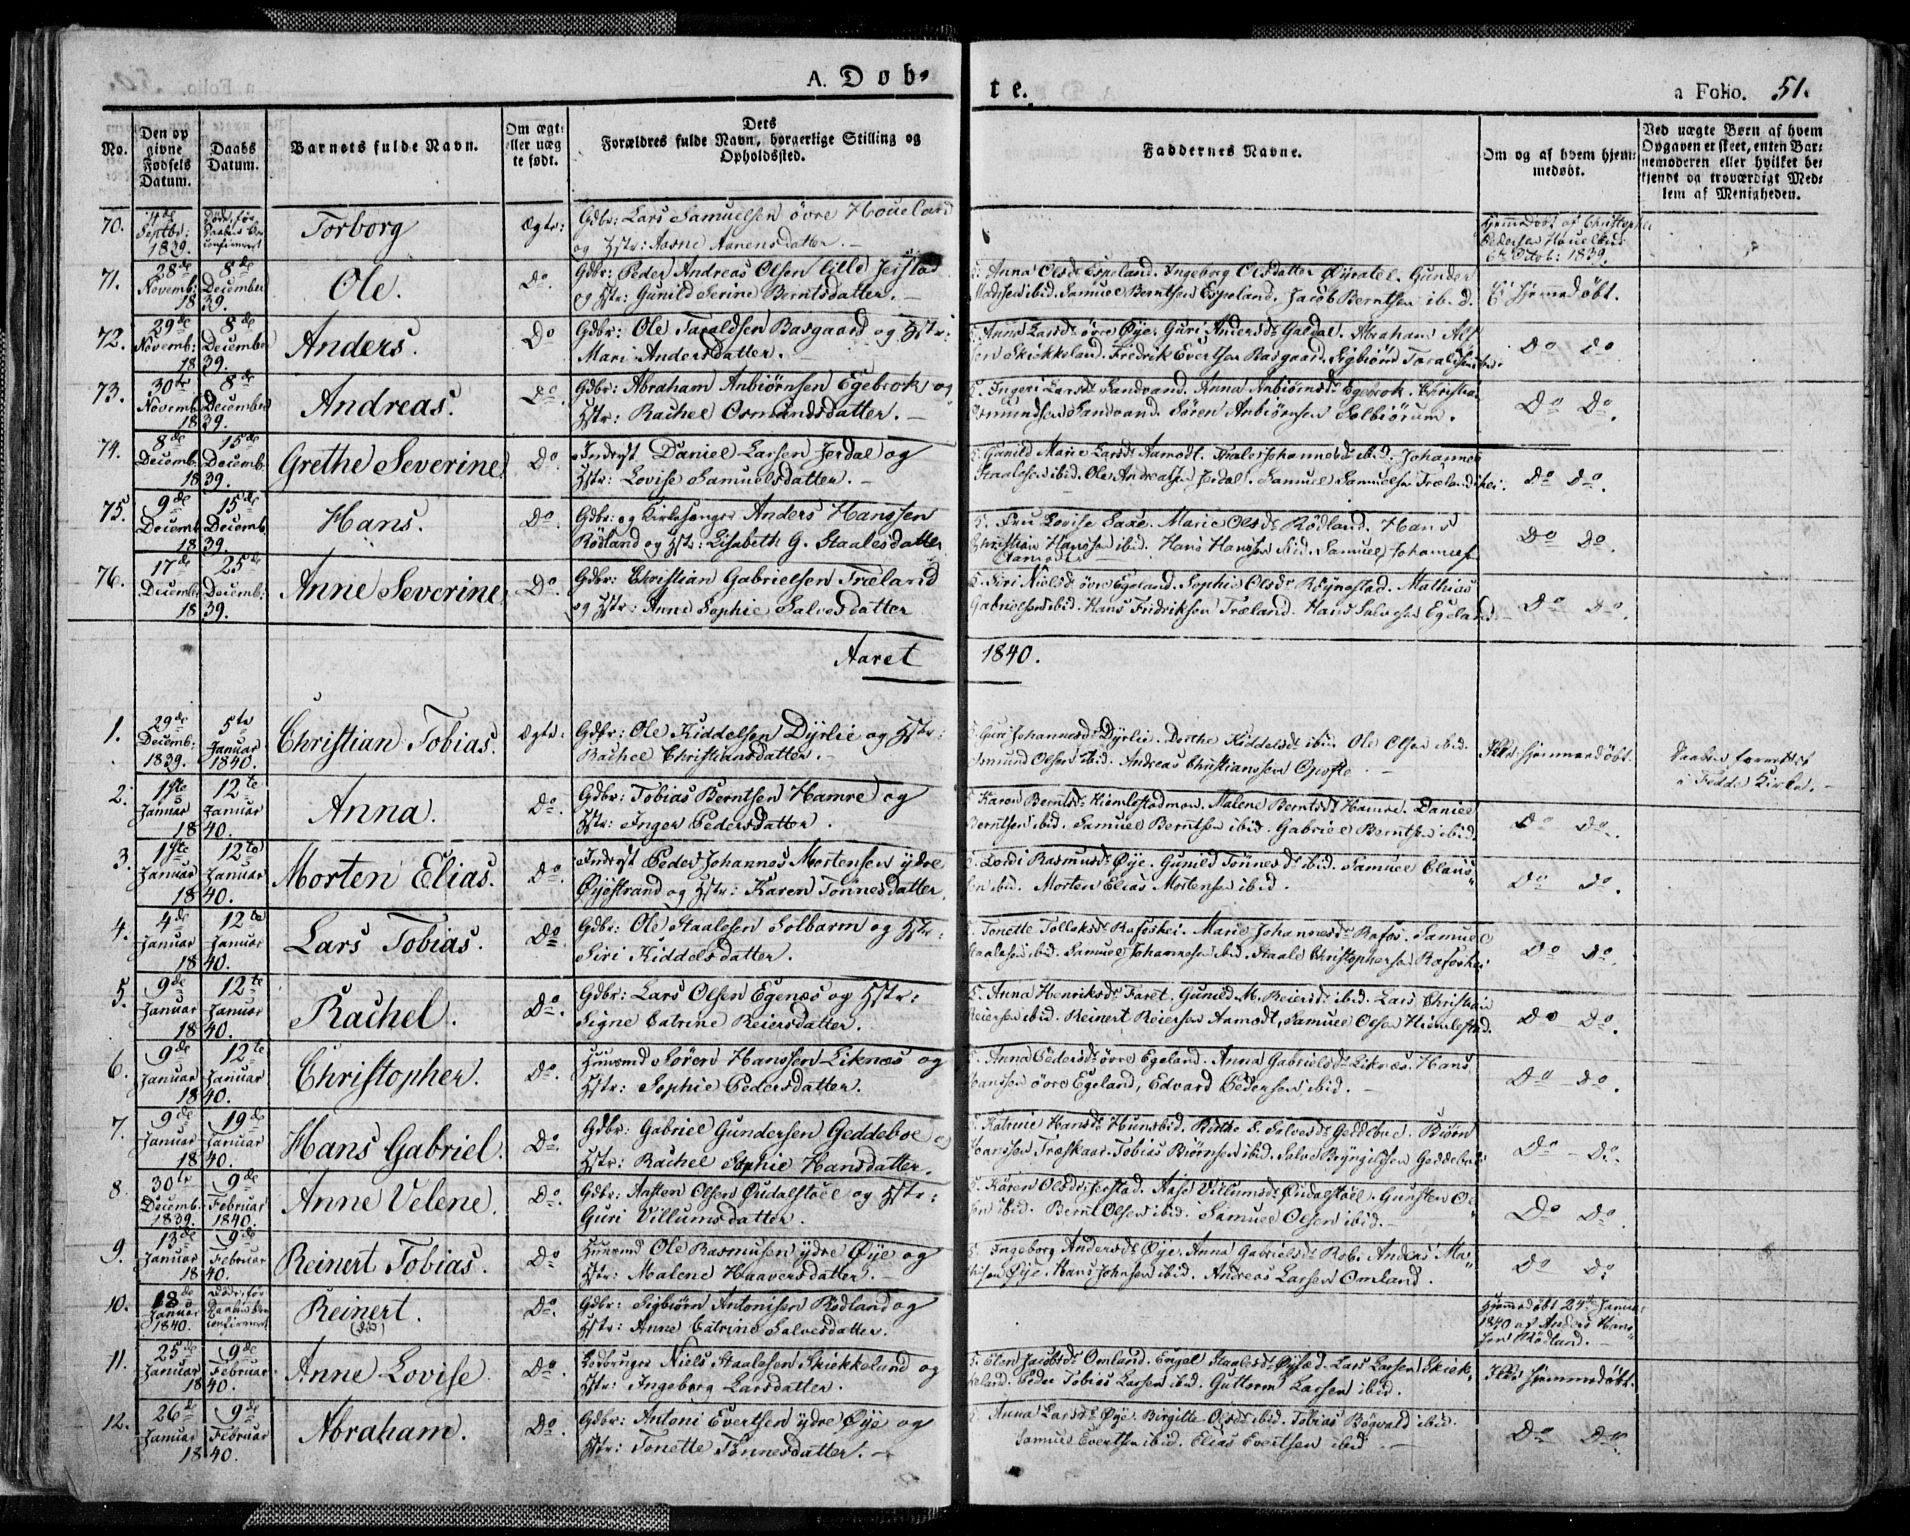 A. Døb-
te.
a Folio. 51.
No.
Den op
givne
Fødsels
Datum.
Daabs
Datum.
Barnets fulde Navn.
Om ægt:
eller uæg
te født.
Dets
Forældres fulde Navn, borgerlige Stilling og
Opholdssted.
Faddernes Navne.
Om og af hvem hjem-
medøbt.
Ved uægte Børn af hvem
Opgaven er skeet, enten Bar-
nemoderen eller hvilket be-
kjendt og troværdigt Med-
lem af Menigheden.
70.
4de
Septbr:
1839.
Torborg
Ægte:
Gdbr: Lars Samuelsen øvre Houeland
og Hstr: Aasne Aanensdatter. —
Hjemmedøbt af Christopher
Pedersen Houeland
6te Octob: 1839.
71.
28de
Novemb:
8de
December
1839.
Ole.
Do
Gdbr: Peder Andreas Olsen lille Jerstad
og Hstr: Gunild Serine Berntsdatter. —
Anna Olsdr Espeland. Ingeborg Olsdatter Gunder
ibid. Samuel Berntsen Espeland. Jacob Berntsen ibid.
Ei Hjemmedøbt.
72.
29de
Novemb:
8de
December
1839.
Anders.
Do
Gdbr: Ole Taraldsen Basgaard og Hstr:
Mari Andersdatter. —
Anna Larsdr øvre Øye. Guri Andersdr Galdal. Abraham
Skikkeland. Fredrik Evertsen Basgaard. Sigbiørn
Do Do
73.
30te
Novemb:
8de
December
1839.
Andreas.
Do
Gdbr: Abraham Anbiørnsen Egebrok og
Hstr: Rachel Osmundsdatter. —
Ingeri Larsdr Sandvand. Anna Anbiørnsdr Egebrok. Christian
Osmundsen Sandvand. Søren Anbiørnsen Solbiørum.
Do Do
74.
8de
Decemb:
15de
Decemb:
1839.
Grethe Severine
Do
Inderst Daniel Larsen Jerdal og
Hstr: Lovise Samuelsdatter. —
Gunild Marie Larsdr Aamodt. Johannesdr ibid. Johannes
Staalesen ibid. Ole Andreas Jerdal. Samuel Samuelsen Trælandshei.
Do Do.
75.
9de
Decemb:
15de
Decemb:
1839.
Hans.
Do
Gdbr: og Kirkesanger Anders Hanssen
Rødland og Hstr: Lisabeth G. Staalesdatter
Fru Lovise Saxe. Marie Olsdr Rødland. Hans
Christian Hanssen ibid. Hans Hanssen ibid. Samuel Johannes
Do Do.
76.
17de
Decemb:
25de
Decemb:
1839.
Anne Severine
Do
Gdbr: Christian Gabrielsen Træland
og Hstr: Anne Sophie Salvesdatter
Siri Nielsdr øvre Egeland. Sophie Olsdr Røynestad. Mathias
Gabrielsen ibid. Hans Fridriksen Træland. Hans Salvesen Egeland
Do Do.
Aaret 1840.
1.
29de
Decemb:
1839.
5te
Januar
1840.
Christian Tobias.
Ægte:
Gdbr: Ole Kiddelsen Dyrlie og Hstr:
Rachel Christiansdatter. —
Guri Johannesdr Dyrlie. Dorthe Kiddelsdr ibid. Ole Olsen ibid.
Asmund Olsen ibid. Andreas Christianssen Opofte. —
Ikke hjemmedøbt.
Daaben forrettet
i Fedde Kirke. —
2.
1ste
Januar
12te
Januar
1840.
Anna.
Do
Gdbr: Tobias Berntsen Hamre og
Hstr: Inger Pedersdatter.
Karen Berntsdr Hiemlestadmoen. Malene Berntsdr Hamre. Daniel
Berntsen ibid. Samuel Berntsen ibid. Gabriel Berntsen ibid.
Do Do.
3.
1ste
Januar
12te
Januar
1840.
Morten Elias.
Do
Inderst Peder Johannes Mortensen ydre
Øyestrand og Hstr: Karen Tønnesdatter.
Lordi Rasmusdr Øye. Gunild Tønnesdr ibid. Samuel Claus-
sen ibid. Morten Elias Mortensen ibid.
Do Do.
4.
4de
Januar
12te
Januar
1840.
Lars Tobias.
Do
Gdbr: Ole Staalesen Solbarm og Hstr:
Siri Kiddelsdatter.
Tonette Tolleksdr Rafoshei. Marie Johannesdr Rafos. Samuel
Staalesen ibid. Samuel Johannesen ibid. Staale Christophersen Rafoshei
Do Do.
5.
9de
Januar
12te
Januar
1840.
Rachel.
Do
Gdbr: Lars Olsen Egenæs og Hstr:
Signe Catrine Reiersdatter.
Anna Henriksdr Faret. Gunild M. Reiersdr ibid. Lars Christian
Reiersen ibid. Reinert Reiersen Aamodt. Samuel Olsen Hiemlestad.
Do Do.
6.
9de
Januar
12te
Januar
1840.
Christopher.
Do.
Huusmd Søren Hanssen Liknæs og
Hstr: Sophie Pedersdatter.
Anna Pedersdr øvre Egeland. Anna Gabrielsdr Liknæs. Hans
Hanssen øvre Egeland, Edvard Pedersen ibid.
Do Do.
7.
9de
Januar
19de
Januar
1840.
Hans Gabriel.
Do
Gdbr: Gabriel Gundersen Geddeboe og
Hstr: Rachel Sophie Hansdatter.
Katrine Hansdr Hunsbid. Berthe S. Salvesdr Geddeboe. Biørn
Hanssen Træskaar. Tobias Biørnsen ibid. Salve Brynildsen Geddeboe
Do Do.
8.
30te
Decemb:
1839.
9de
Februar
1840.
Anne Velene.
Do
Gdbr: Ansten Olsen Øudalstøel og Hstr:
Guri Villumsdatter.
Karen Olsdr Jerstad. Aase Villumsdr Øudalstøel. Gunsten Ol-
sen ibid. Bernt Olsen ibid. Samuel Olsen ibid. —
Do Do.
9.
13de
Januar
9de
Februar
1840.
Reinert Tobias.
Do
Huusmd Ole Rasmusen ydre Øye og
Hstr: Malene Haaversdatter. —
Ingeborg Andersdr Øye. Anna Gabrielsdr Andreas Ma-
thisen Øye. Hans Johnsen ibid. Andreas Larsen Omland.
Do Do
10.
18de
Januar
1840.
Reinert.
Do
Gdbr: Sigbiørn Antonisen Rødland og
Hstr: Anne Catrine Salvesdatter.
Hjemmedøbt 24de Januar
1840 af Anders Hans-
sen Rødland.
11.
25de
Januar
9de
Februar
1840.
Anne Lovise
Do
Ledbruger Niels Staalesen Skiekkeland og
Hstr: Ingeborg Larsdatter.
Elen Jacobsdr Omland. Engel Staalesdr Lars Larsen Skiek-
keland. Peder Tobias Larsen ibid. Guttorm Larsen ibid.
Ikke hjemmedøbt.
12.
26de
Januar
9de
Februar
1840.
Abraham.
Do
Gdbr: Antoni Evertsen ydre Øye og
Hstr: Tonette Tønnesdatter. —
Anna Larsdr Øye. Birgitte Olsdr ibid. Tobias Røgvald ibid.
Samuel Evertsen ibid. Elias Evertsen ibid —
Do Do